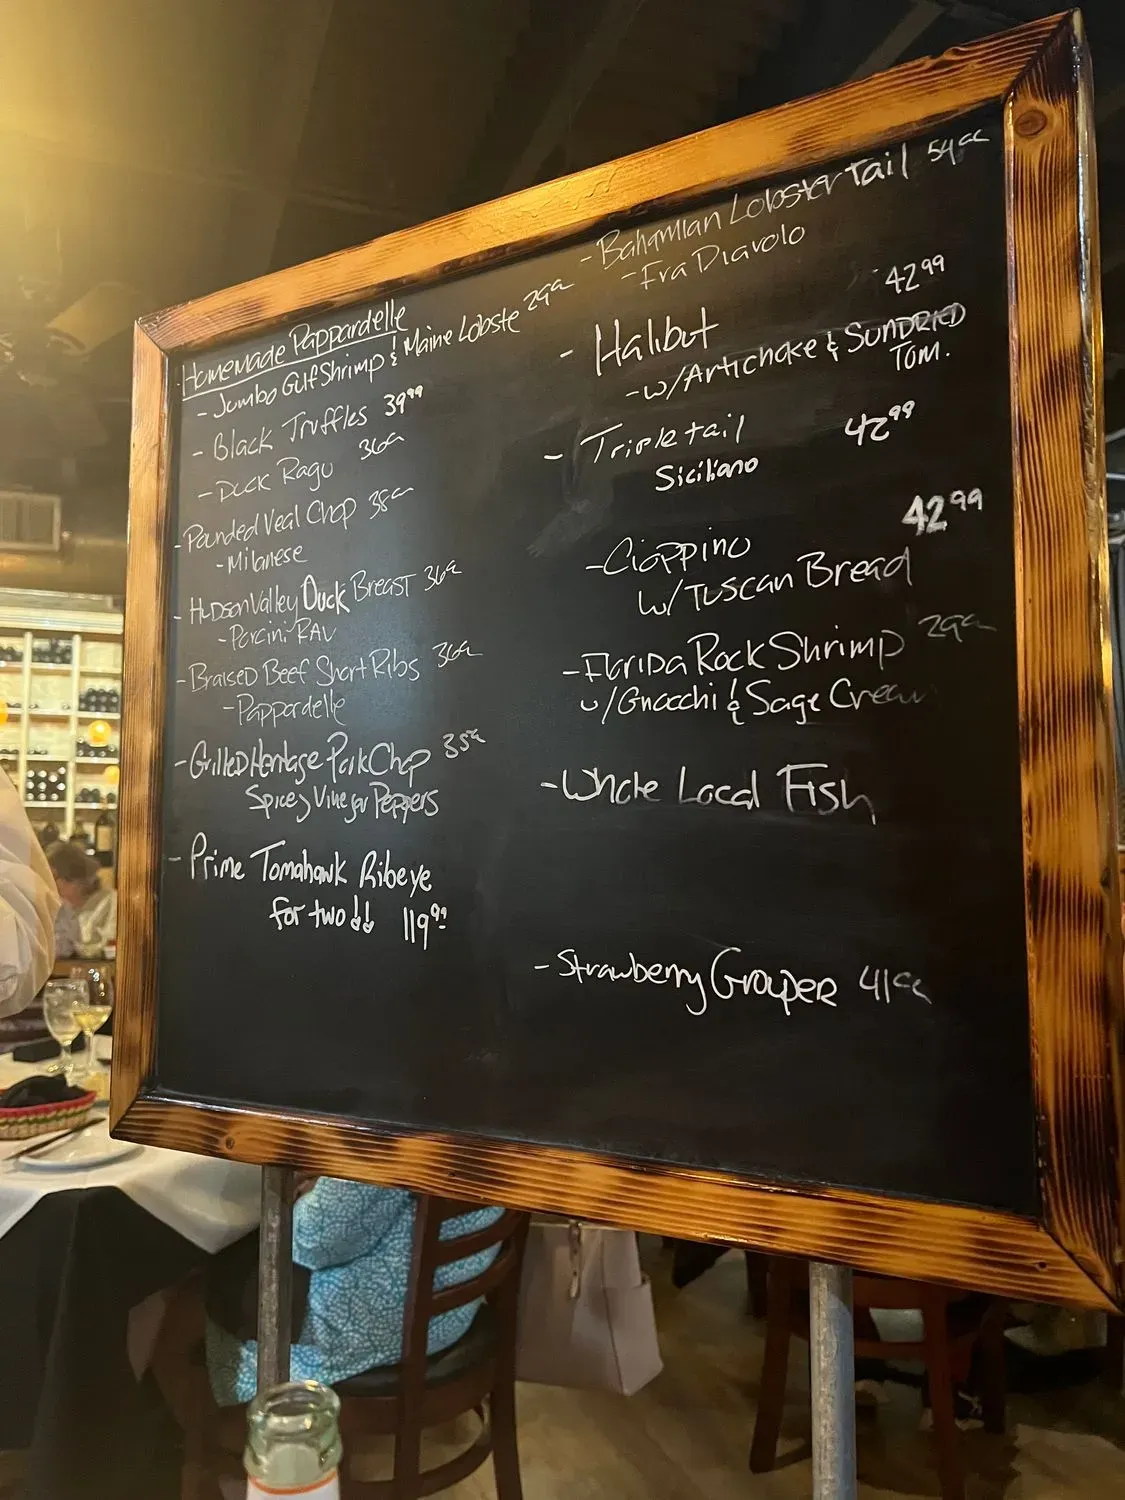 Homemade Pappardelle
- Jumbo Gulf Shrimp & Maine Lobste 2999
- Black Truffles 3999
- Duck Ragu 3699
- Pounded Veal Chop 3899
- Milanese
- Hudson Valley Duck Breast 3699
- Porcini RAV
- Braised Beef Short Ribs 3699
- Pappardelle
- Grilled Heritage Pork Chop 3599
Spicey Vinegar Peppers
- Prime Tomahawk Ribeye
for two!! 11999
- Bahamian Lobster Tail 5499
- Fra Diavolo
- Halibut 4299
- w/Artichoke & SUNDRIED
Tom.
- Tripletail 4299
Siciliano
- Cioppino 4299
w/Tuscan Bread
- Florida Rock Shrimp 2999
w/Gnocchi & Sage Cream
- Whole Local Fish
- Strawberry Grouper 4199